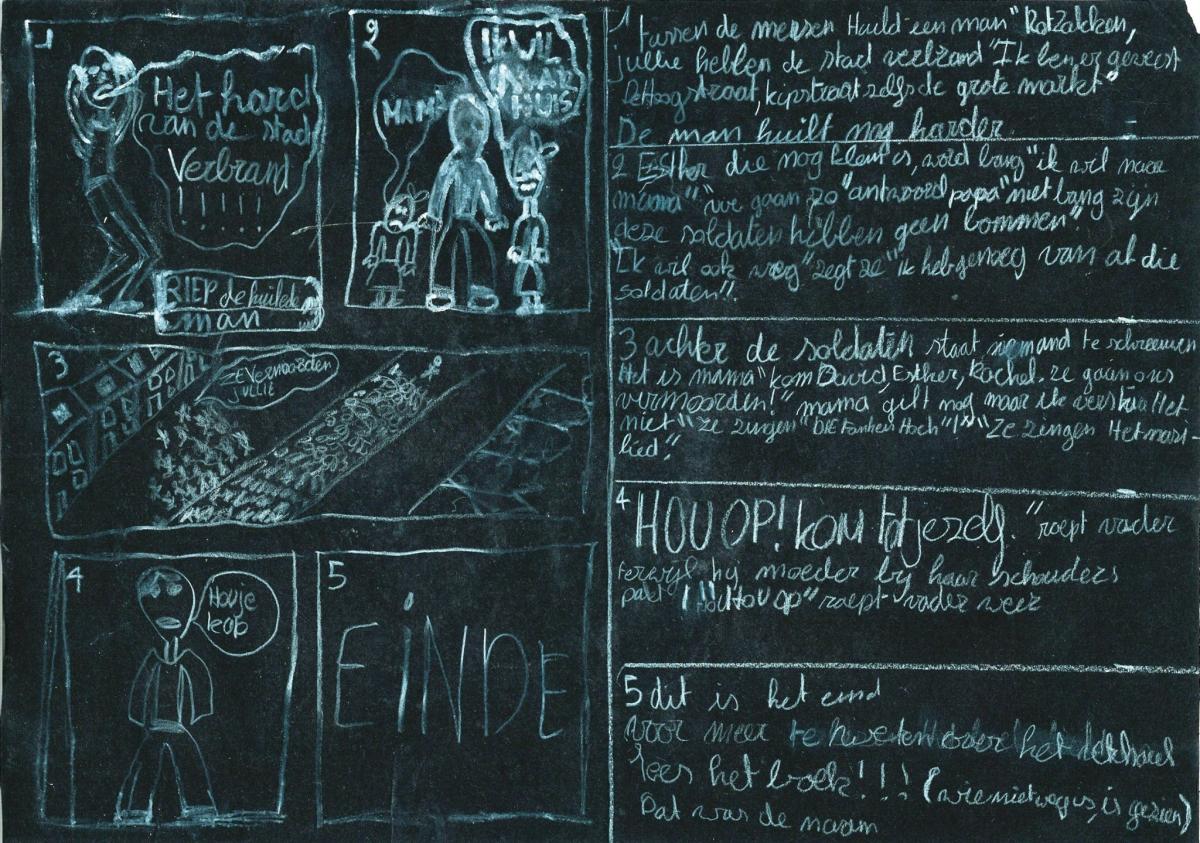 1
Het hard
van de stad
Verbrand
!!!!!
RIEP de huilede
man
2
MAMA
IK WIL
NAAR
HUIS
3
ZE Vermoorden
JULLIE
4
Hou je
kop
5
EINDE
1 tussen de mensen Huild een man "Rotzakken,
jullie hebben de stad verbrand "Ik ben er geweest
De Hoogstraat, kipstraat zelfs de grote markt"
De man huilt nog harder
2 Esther die nog klein is, word bang "ik wil naar
mama" "we gaan zo" antwoord papa "niet bang zijn
deze soldaten hebben geen bommen".
"Ik wil ook weg" zegt ze "ik heb genoeg van al die
soldaten".
3 achter de soldaten staat iemand te schreeuwen
Het is mama "kom David, Esther, Rachel. ze gaan ons
vermoorden!" mama gilt nog maar ik versta Het
niet "ze zingen "DIE Fanhen Hoch"!" "Ze zingen Het nazi
lied".
4 HOU OP! kom tot jezelf. "roept vader
terwijl hij moeder bij haar schouders
pakt "HOU OP" roept vader weer
5 dit is het eind
voor meer te weten over het
lees het boek!!! (wie niet weg is, is gezien)
Dat was de naam